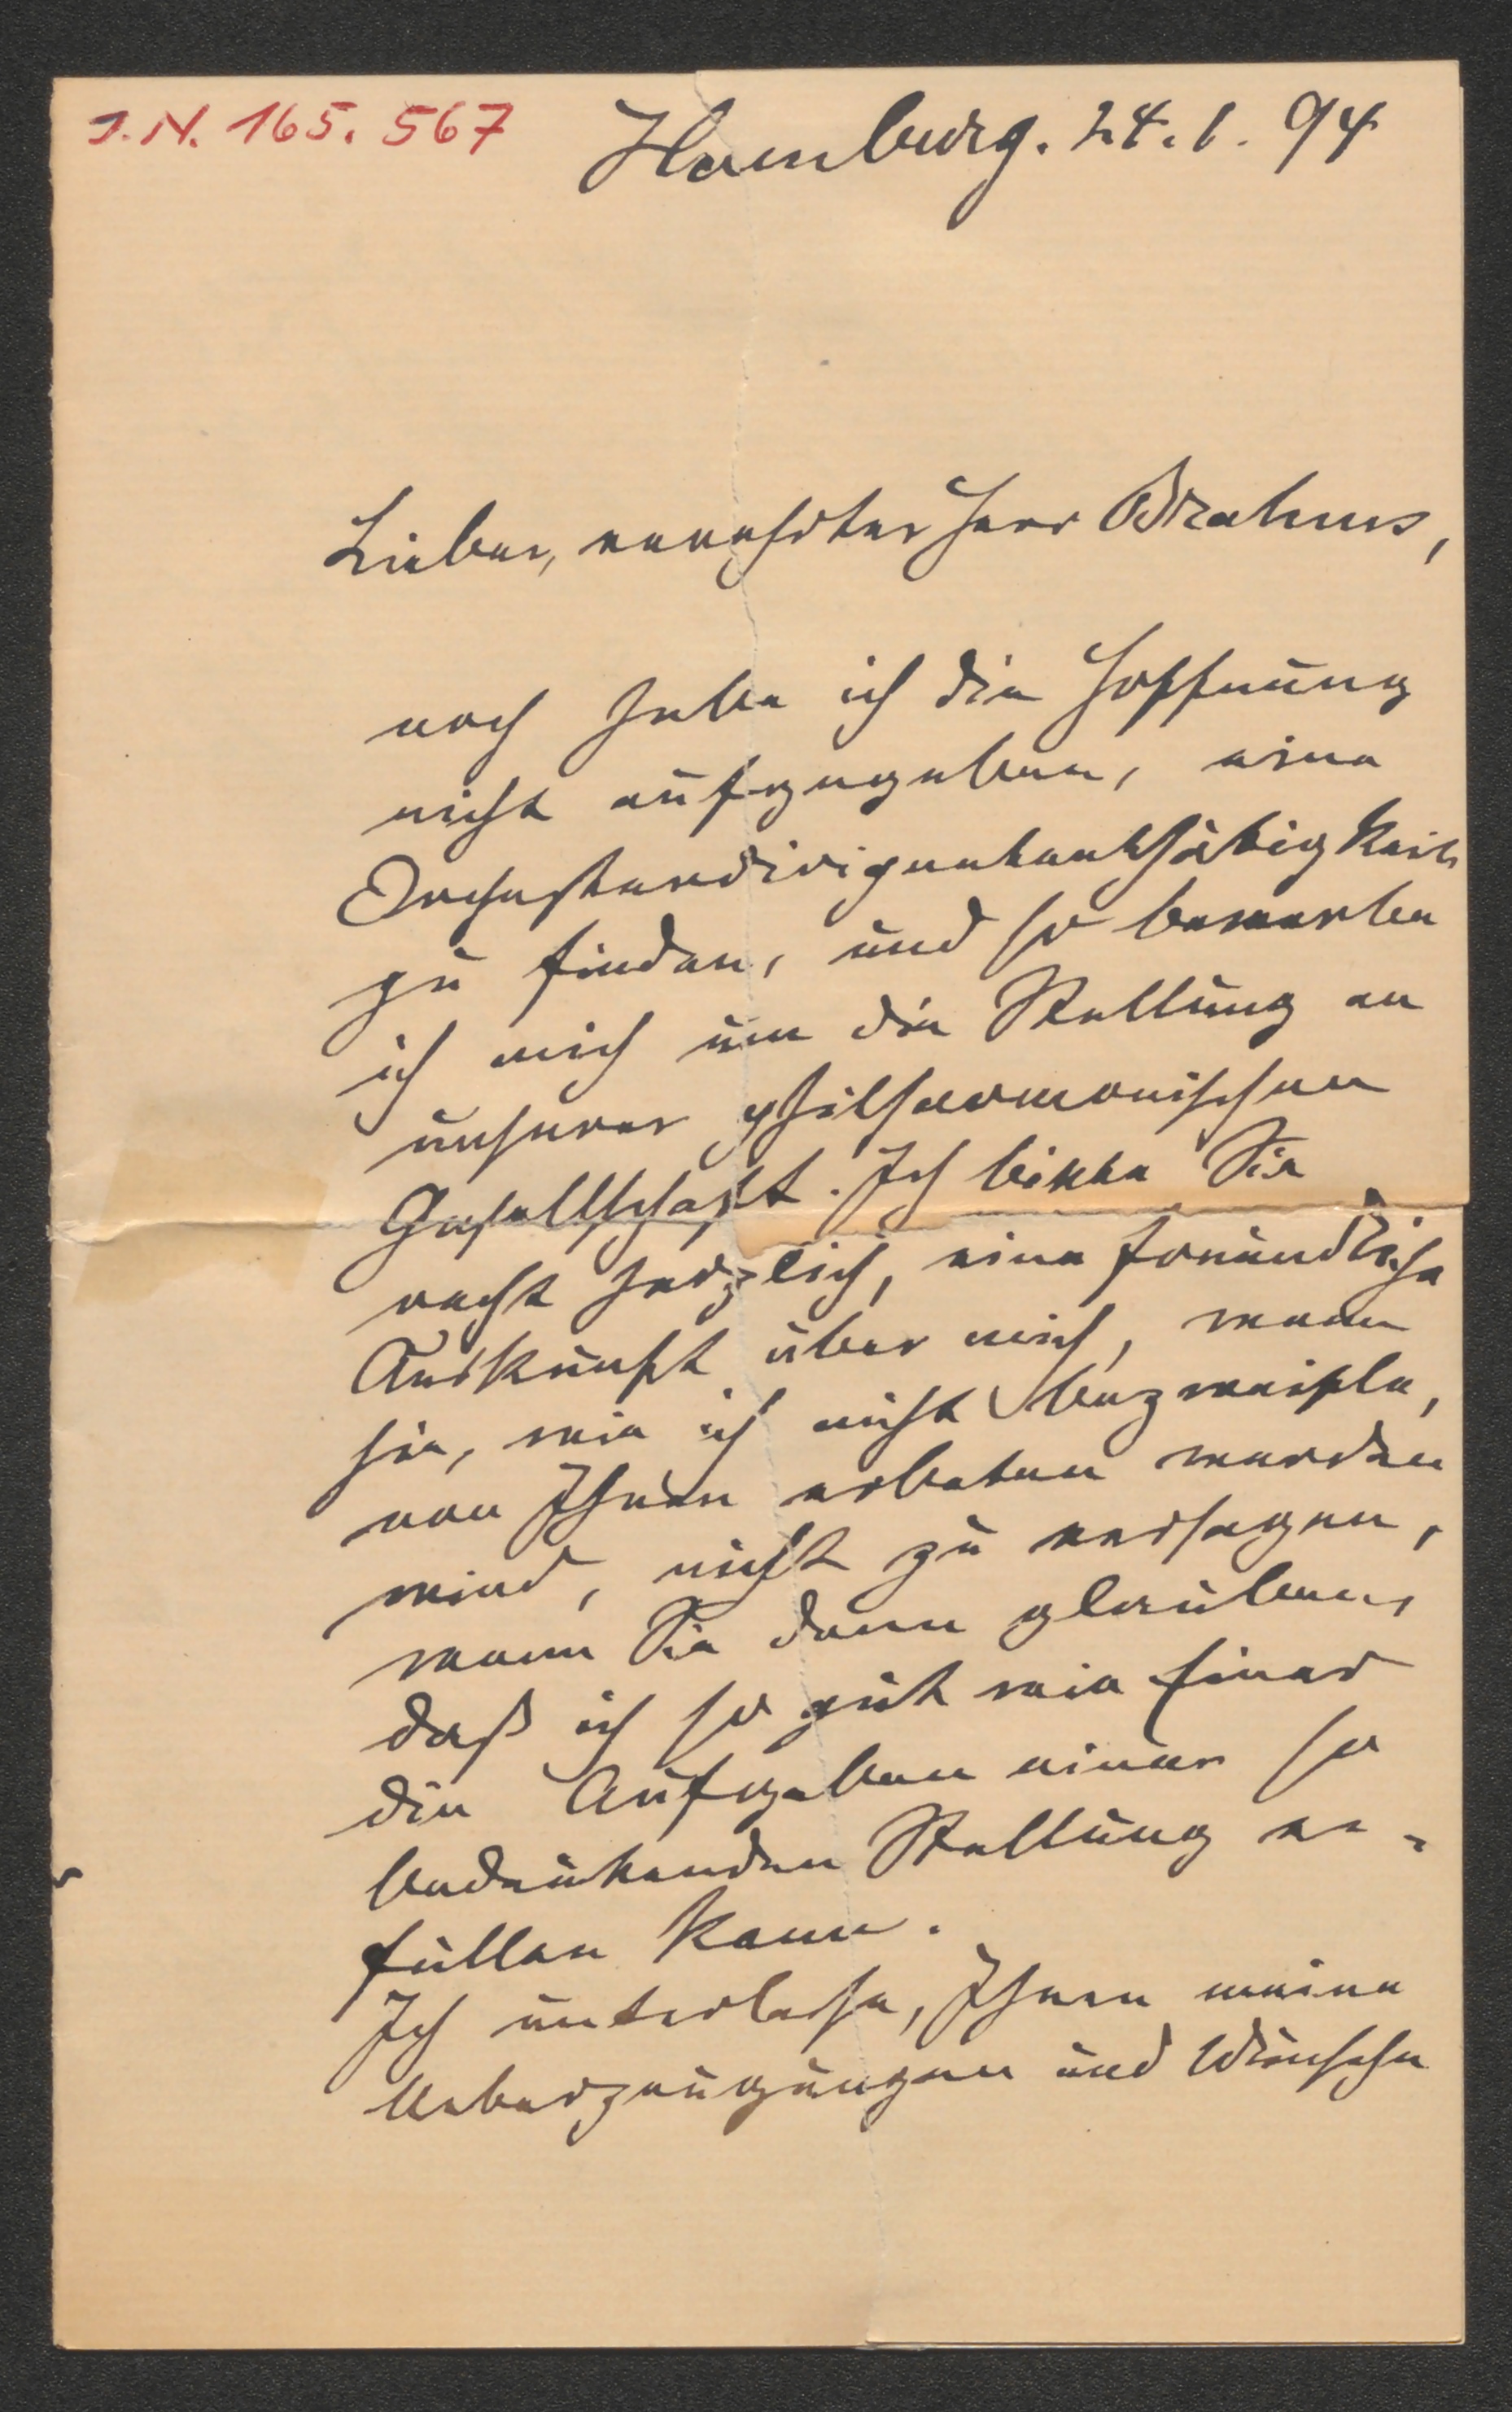 J.N. 165.567
Hamburg. 24.1.94
Lieber, verehrter Herr Brahms,
noch habe ich die Hoffnung
nicht aufgegeben, eine
Orchesterdirigententhätigkeit
zu finden, und so bewerbe
ich mich um die Stellung an
unserer philharmonischen
Gesellschaft. Ich bitte Sie
recht herzlich, eine freundliche
Auskunft über mich, wenn
sie, wie ich nicht bezweifle,
von Ihnen erbeten werden
wird, nicht zu versagen,
wenn Sie denn glauben,
daß ich so gut wie Einer
die Aufgaben einer so
bedeutenden Stellung er-
füllen kann.
Ich unterlasse, Ihnen meine
Ueberzeugungen und Wünsche